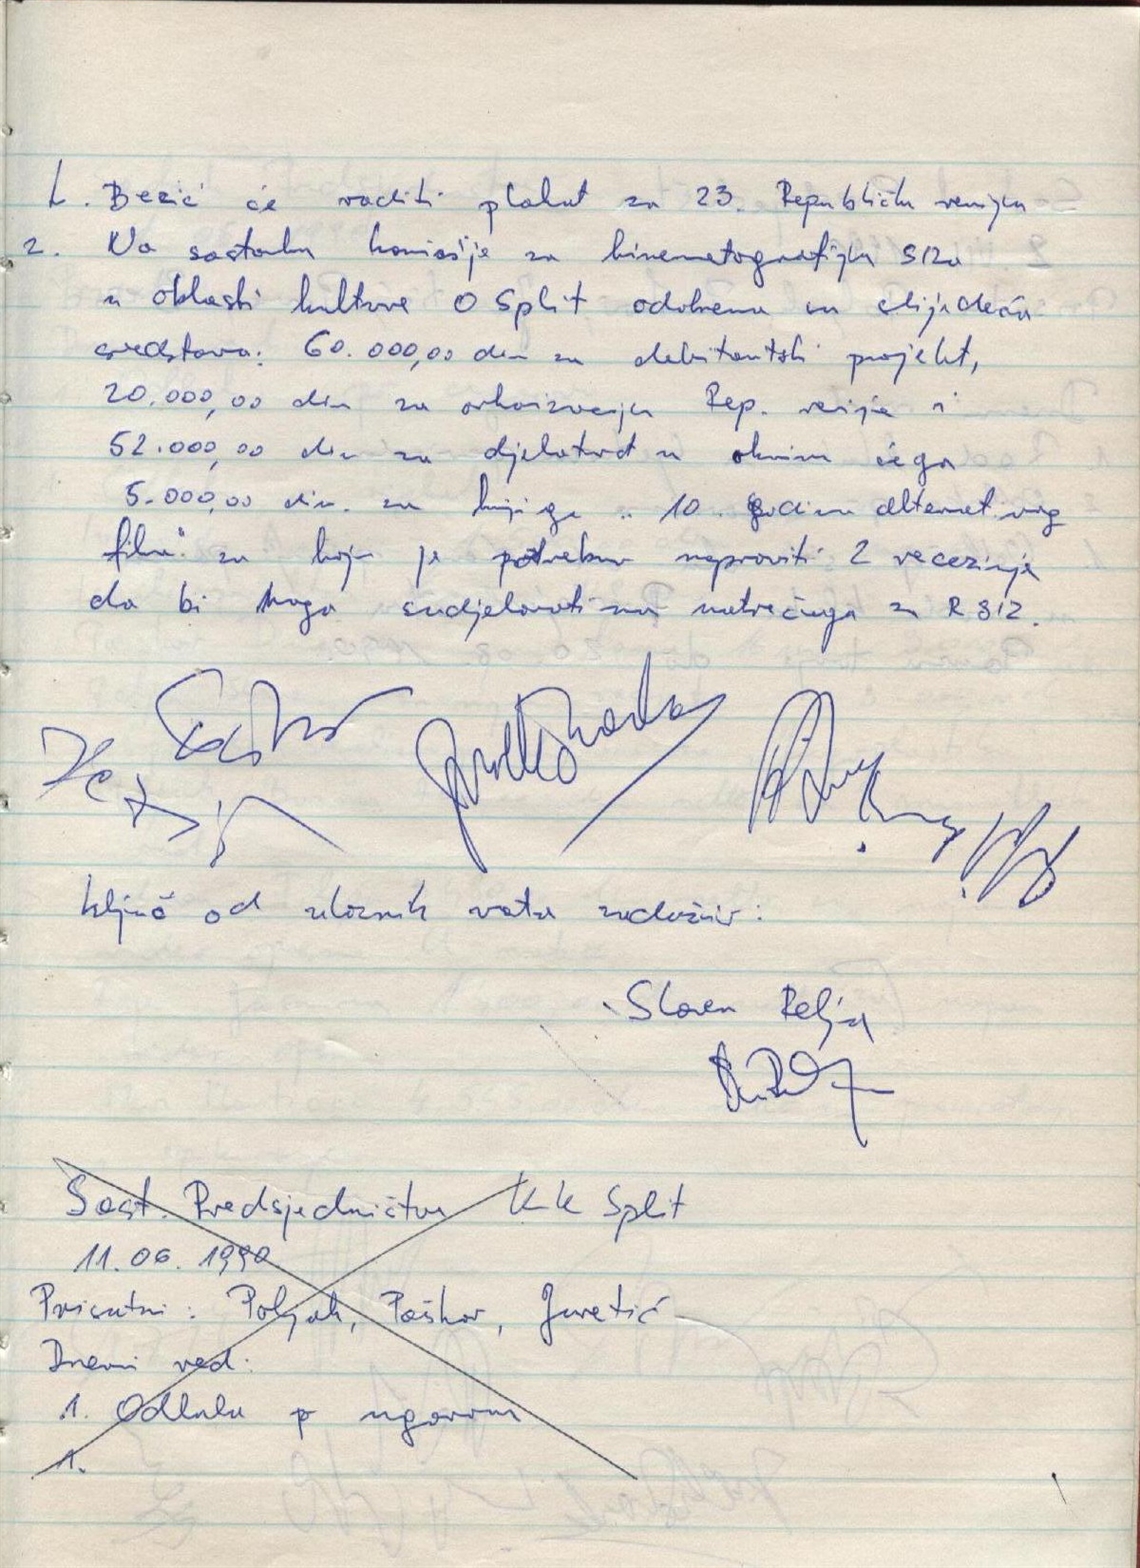 1. Bezić će raditi plakat za 23. Republičku reviju
2. Na sastanku komisije za kinematografiju SIZa
u oblasti kulture O Split odobrena su slijedeća
sredstva: 60.000,00 din za debitantski projekt,
20.000,00 din za orhanizaciju Rep. revije i
52.000,00 din za djelatnost u okviru čega
5.000,00 din. za knjigu "10 godina alternativnog
filma" za koju je potrebno napraviti 2 recezije
da bi mogo sudjelovati na natječaju za RSIZ.
Ključ od ulaznih vrata zadužio:
Sloven Relja
Sast. Predsjedništva KK Split
11.06.1990
Prisutni: Poljak, Paškov, Juretić
Dnevni red:
1. Odluka o ugovoru
1.